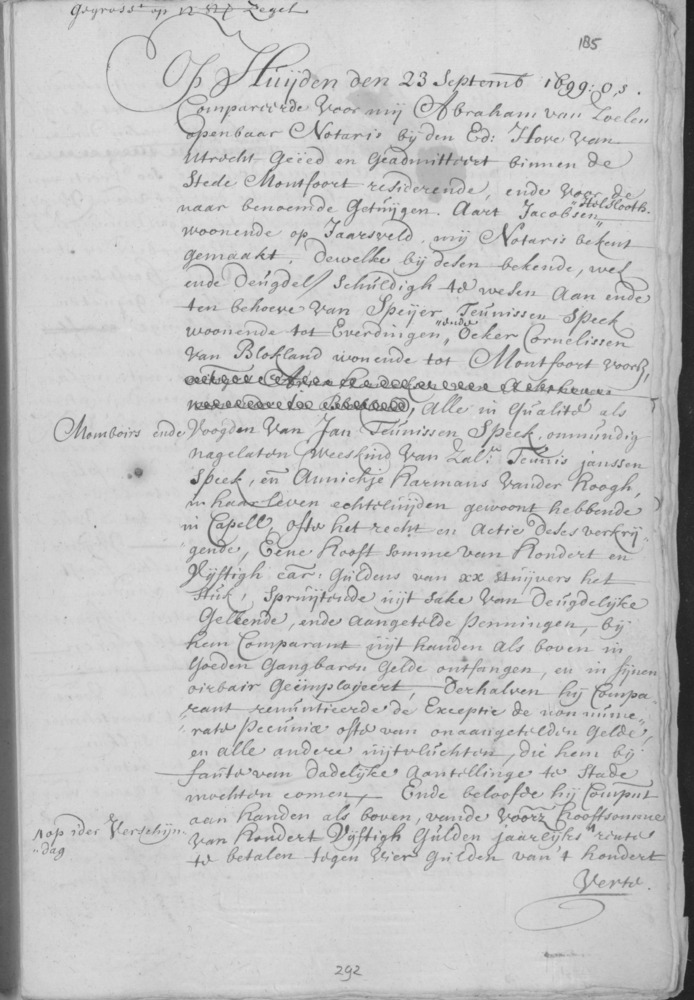 Gegrosst op 12 St: Zegel
185
Op Huijden den 23 Septemb 1699: o, s.
Compareerde voor mij Abraham van Zoelen
openbaar Notaris bij den Ed: Hove van
Utrecht geëed en geadmitteert binnen de
Stede Montfoort residerende, ende voor de
naar benoemde Getuijgen. Aart Jacobsen
"Holslooth
woonende op Jaarsveld, mij Notaris bekent
gemaakt, dewelke bij desen bekende, wel
ende deugdel: Schuldigh te wesen aan ende
ten behoeve van Speijer Teunissen Speck
woonende tot Everdingen, "ende Ocker Cornelissen
van Blokland wonende tot Montfoort voorsz,
alle in qualité als
Momboirs ende Voogden van Jan Teunissen Speek, onmundig
nagelaten Weeskind van Zal: Teunis janssen
Speek, en Annichje Harmans vander Hoogh,
in haar leven echteluijden gewoont hebbende
in Capell, ofte het recht en actie deses verkrij
"gende, Eene hooft somme van hondert en
Vijftigh car: guldens van xx stuijvers het
stuk, Spruijtende uijt sake van deugdelijke
Geleende, ende aangetelde penningen, bij
hem Comparant uijt handen als boven in
goeden gangbaren gelde ontfangen, en in sijnen
oirbair geimploijeert, derhalven hij Compa-
"rant renuntieerde de Exceptie de non nume-
"rate pecunie ofte van onaangetelden gelde,
en alle andere uijtvluchten, die hem bij
faute van dadelijke aantellinge te stade
mochten comen, Ende beloofde hij Compnt
aen handen als boven, vande voorz hooftsomme
van hondert vijftigh gulden jaarlijks ^ rente
^ op ider Verschijn-
"dag
te betalen tegen vier gulden van 't hondert
Verte.
292